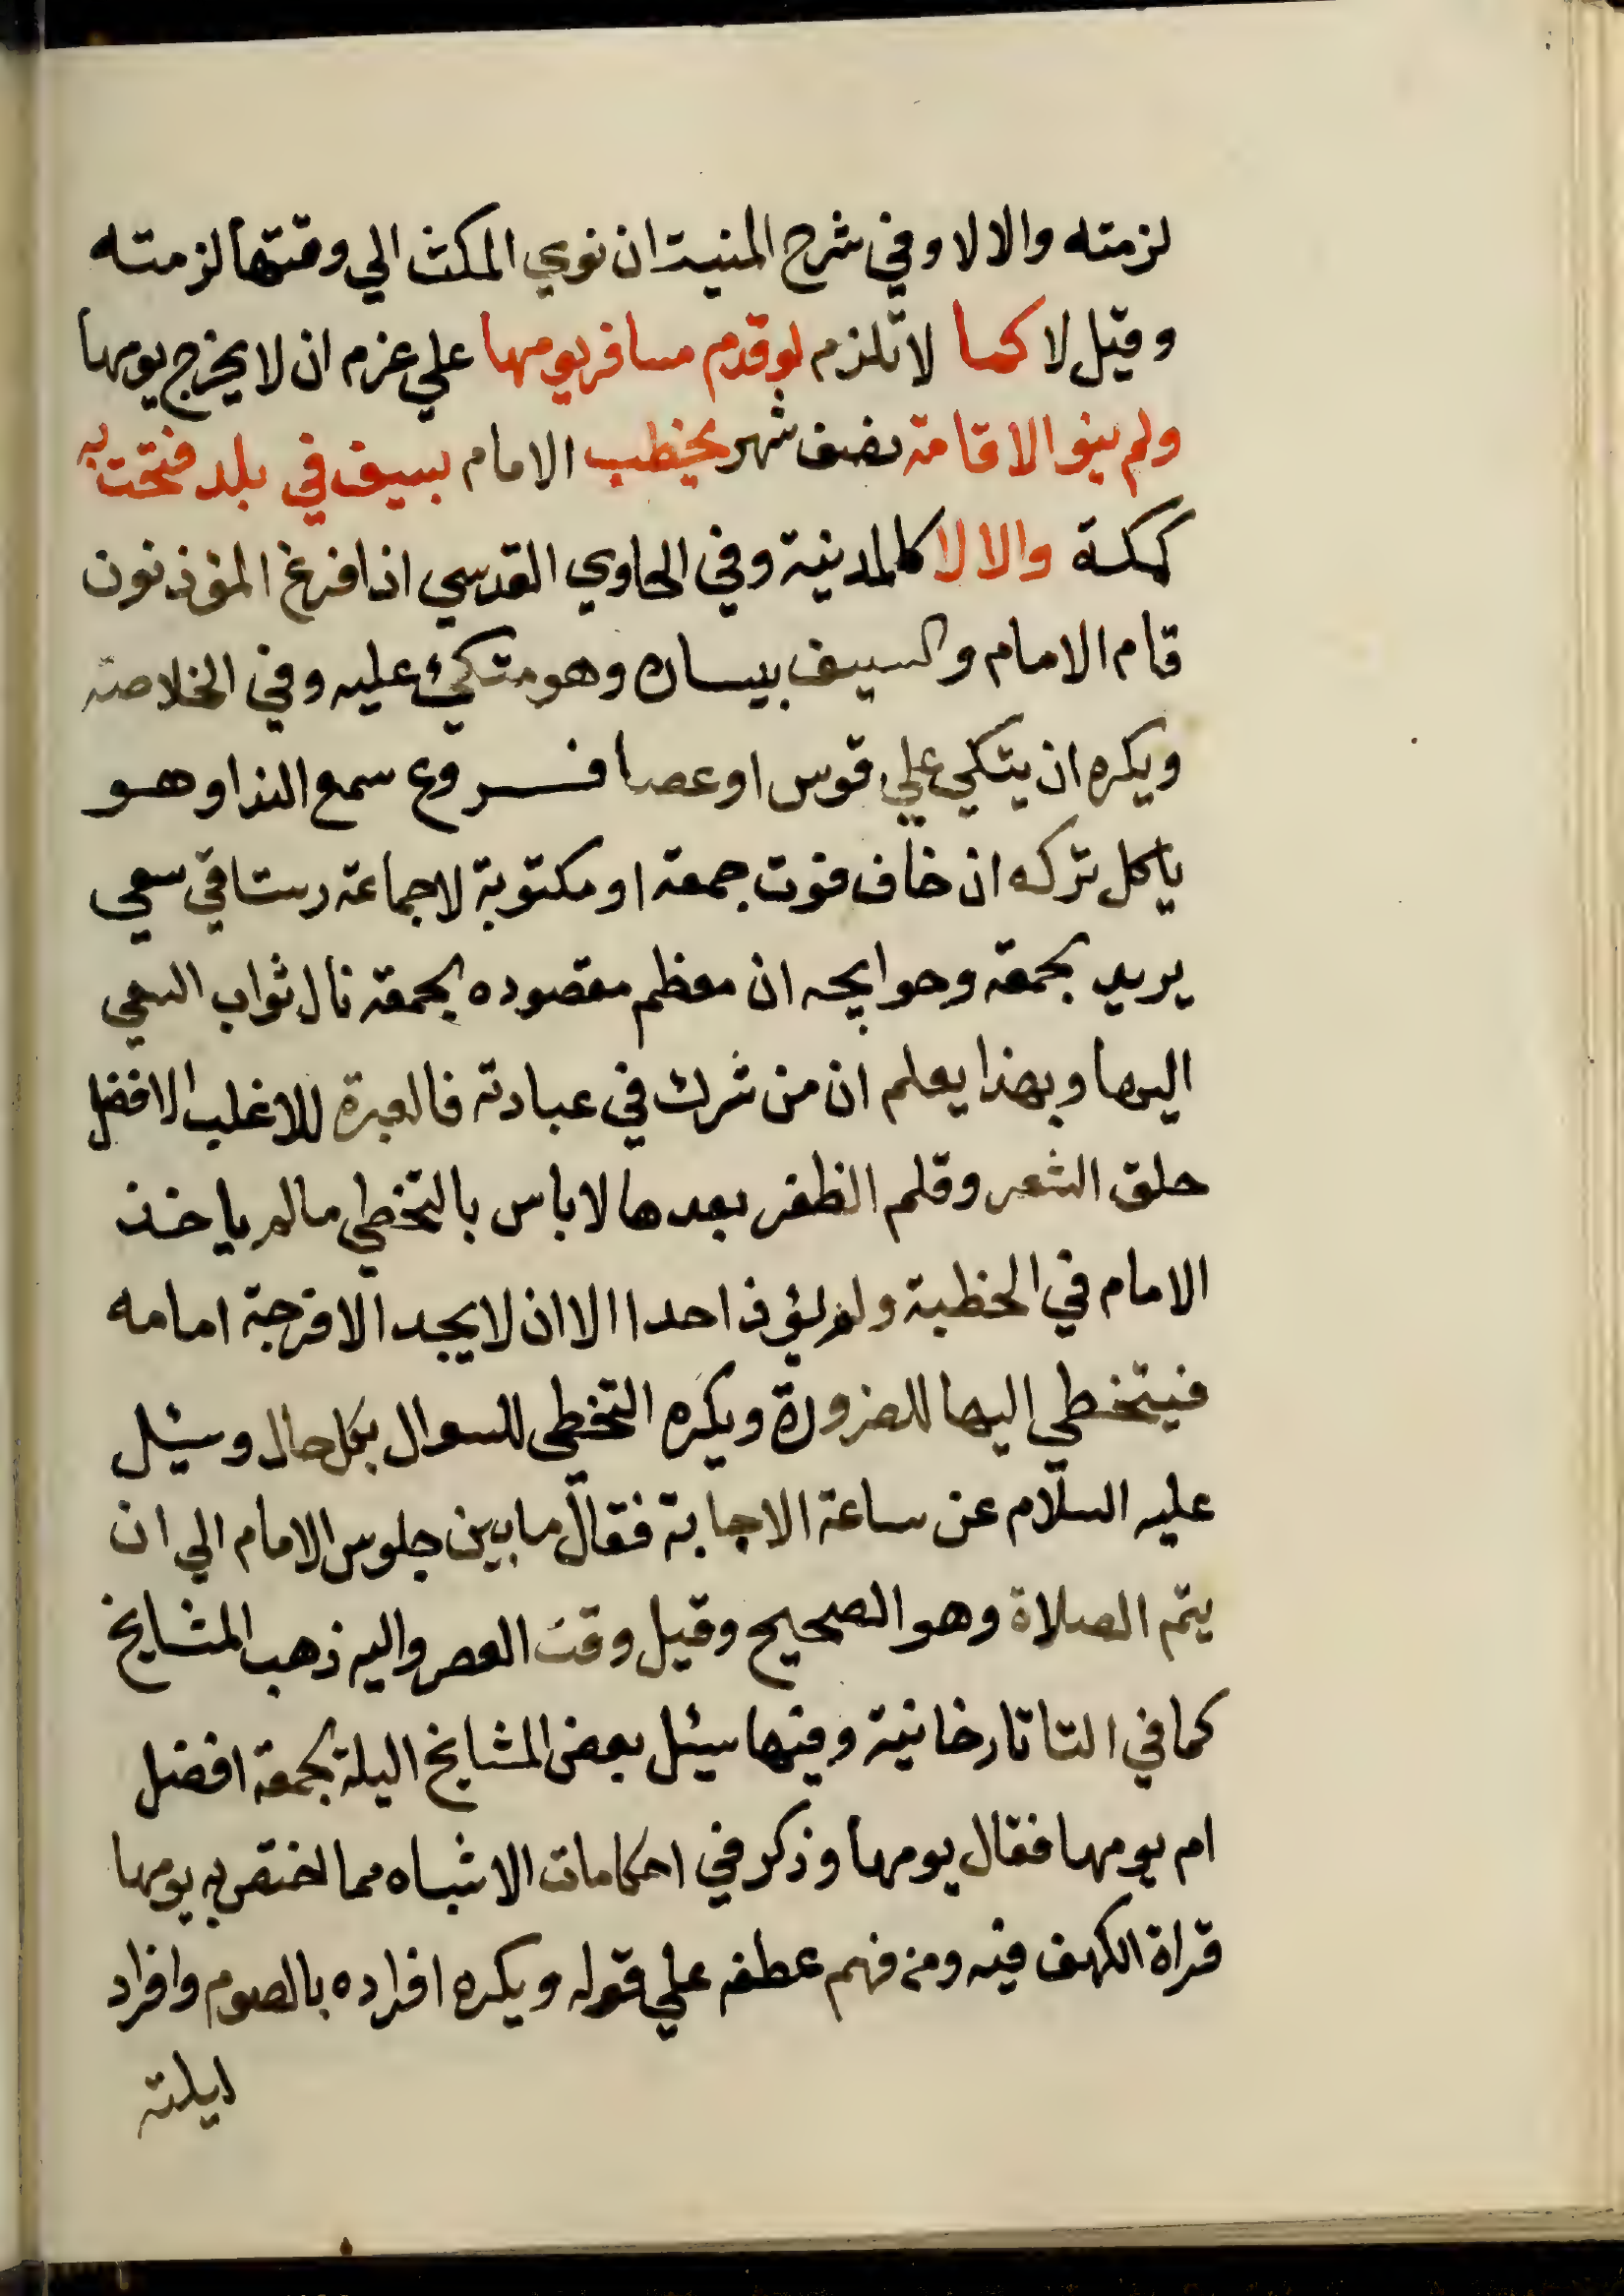 لزمته والا لا وفي شرح المنية ان نوي المكث الي وقتها لزمته
وقيل لا كما لا تلزم لو قدم مسافر يومها علي عزم ان لا يخرج يومها
ولم ينو الاقامة نصف شهر يخطب الامام بسيف في بلد فتحت به
كمكة والا لا كالمدينة وفي الحاوي القدسي اذا فرغ المؤذنون
قام الامام والسيف بيساره وهو متكئ عليه وفي الخلاصة
ويكره ان يتكي علي قوس او عصا فروع سمع الندا وهو
ياكل تركه ان خاف فوت جمعة او مكتوبة لا جماعة رستاقي سعي
يريد الجمعة وحوايجه ان معظم مقصوده الجمعة نال ثواب السعي
اليها وبهذا يعلم ان من شرك في عبادته فالعبرة للاغلب الافضل
حلق الشعر وقلم الظفر بعدها لا باس بالتخطي مالم ياخذ
الامام في الخطبة ولم يؤذ احدا الا ان لا يجد الا فرجة امامه
فيتخطي اليها للضرورة ويكره التخطي للسوال بكل حال وسئل
عليه السلام عن ساعة الاجابة فقال ما بين جلوس الامام الي ان
يتم الصلاة وهو الصحيح وقيل وقت العصر واليه ذهب المشايخ
كما في التاتارخانية وفيها سئل بعض المشايخ اليلة الجمعة افضل
ام يومها فقال يومها وذكر في احكامات الاشباه مما اختص به يومها
قراة الكهف فيه ومن فهم عطفه علي قوله ويكره افراده بالصوم وافراد
ليلته